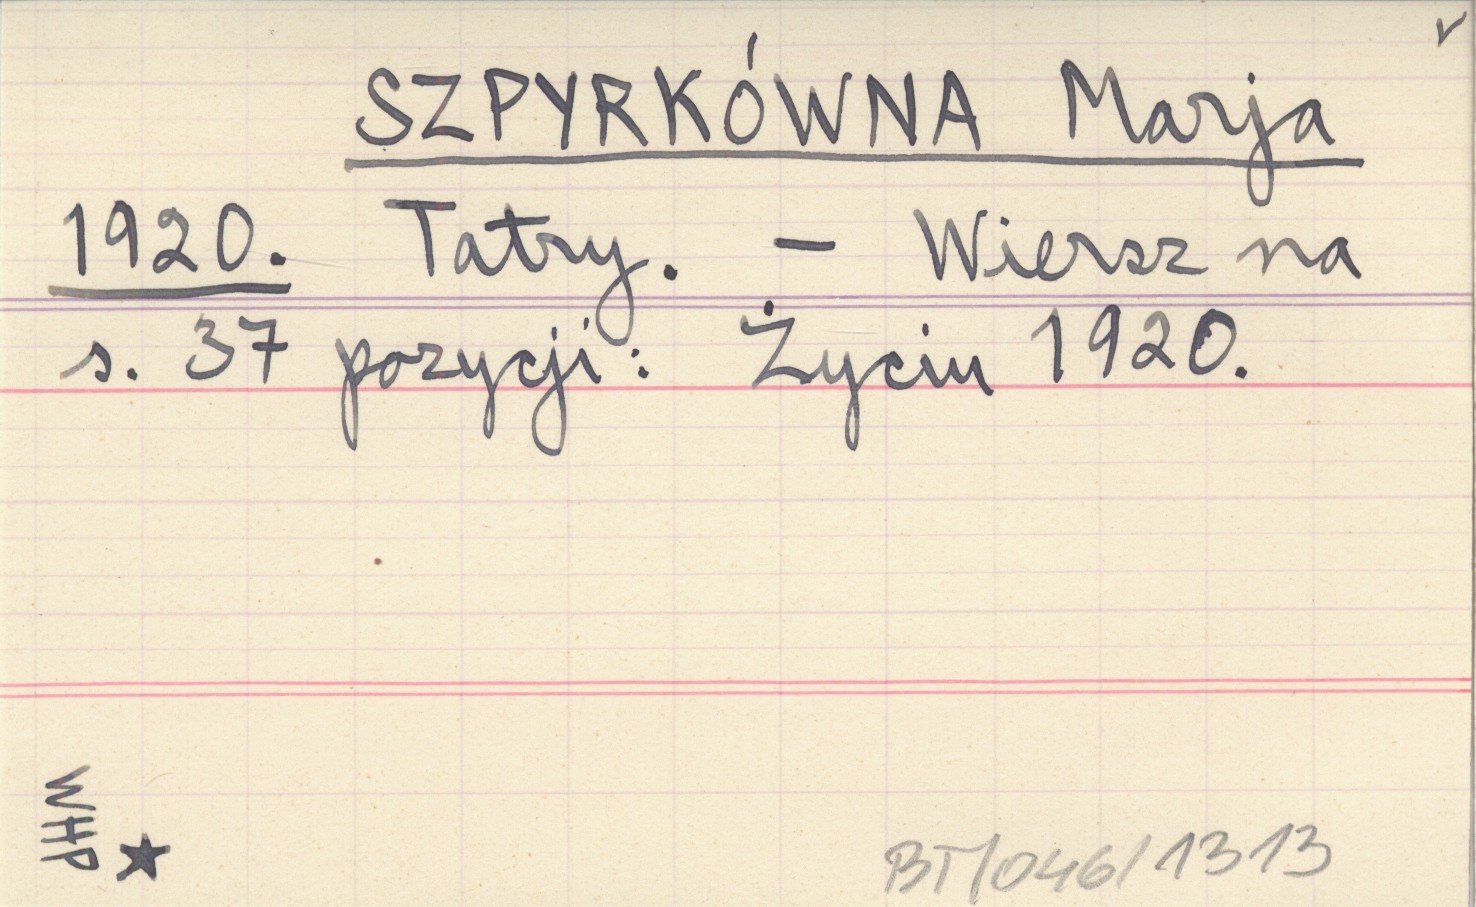 SZPYRKÓWNA Marja
1920. Tatry. — Wiersz na
s. 37 pozycji: Życiu 1920.
WHP
BT/046/1313